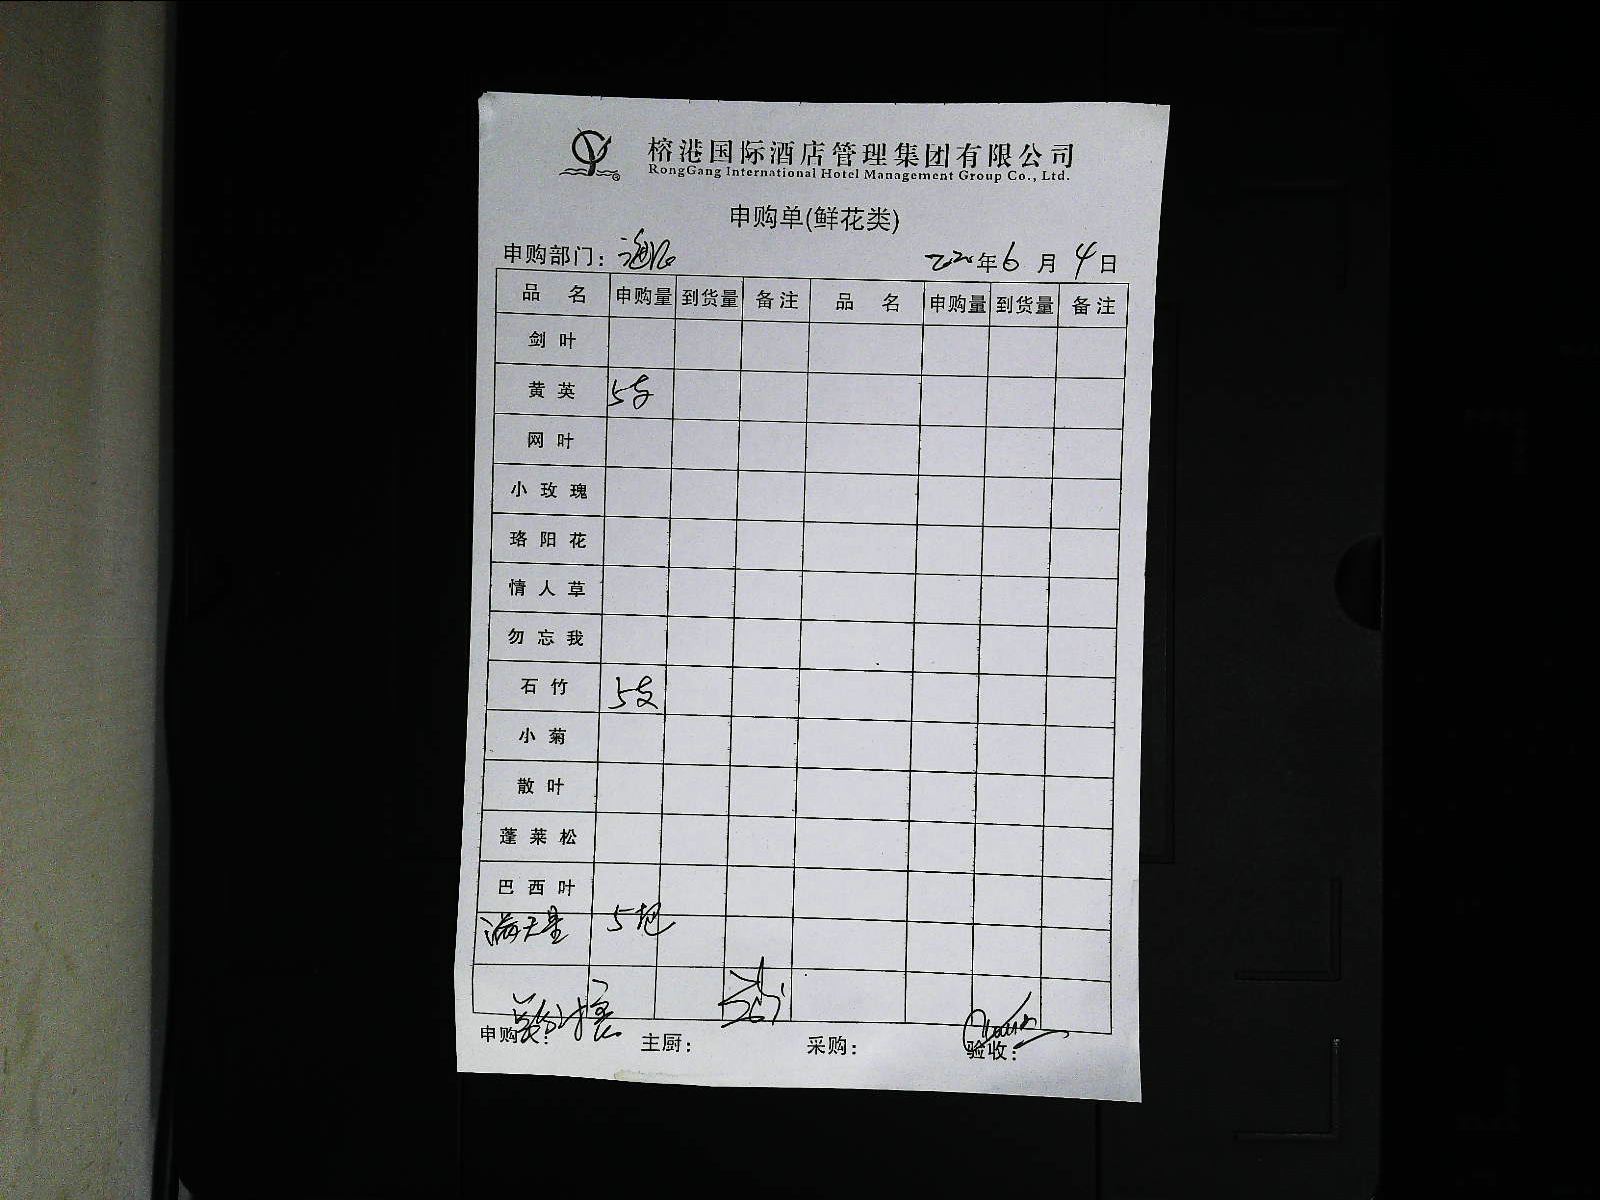 榕港国际酒店管理集团有限公司
RongGang International Hotel Management Group Co., Ltd.
申购单(鲜花类)
申购部门： 年 6 月 4 日
品名 申购量 到货量 备注 品名 申购量 到货量 备注
剑叶
黄英 5支
网叶
小玫瑰
珞阳花
情人草
勿忘我
石竹 5支
小菊
散叶
蓬莱松
巴西叶
满天星 5把
申购人： 主厨： 采购： 验收：